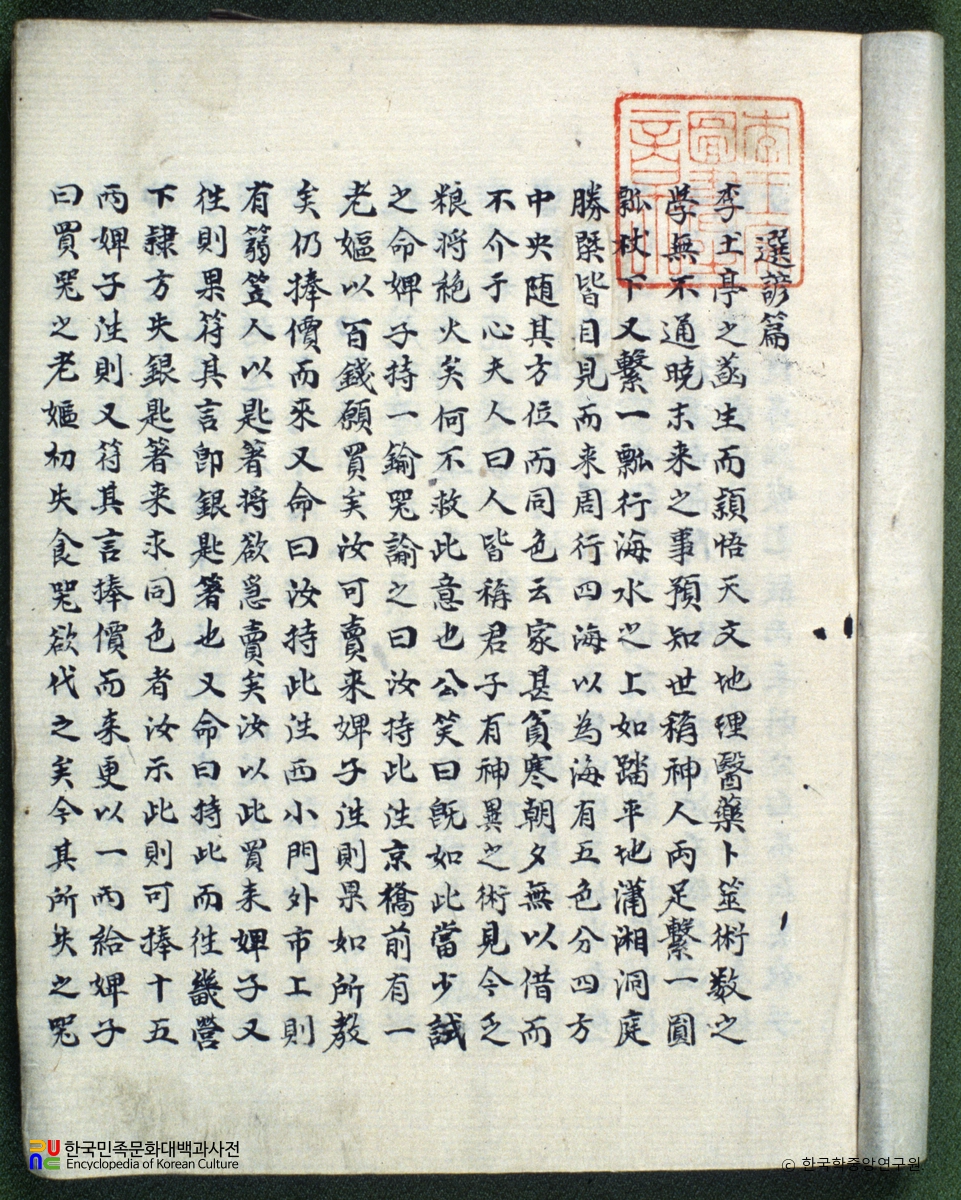 選諺篇
李土亭之菡生而頴悟天文地理醫藥卜筮術數之
學無不通曉未来之事預知世稱神人兩足繫一圓
瓢杖下又繫一瓢行海水之上如踏平地瀟湘洞庭
勝槩皆目見而来周行四海以為海有五色分四方
中央随其方位而同色云家甚貧寒朝夕無以借而
不介于心夫人曰人皆稱君子有神異之術見今乏
粮将絶火矣何不救此意也公笑曰旣如此當少試
之命婢子持一鍮噐諭之曰汝持此往京橋前有一
老嫗以百錢願買矣汝可賣来婢子往則果如所教
矣仍捧價而來又命曰汝持此往西小門外市上則
有篛笠人以匙箸将欲急賣矣汝以此買来婢子又
往則果符其言卽銀匙箸也又命曰持此而往畿營
下隷方失銀匙箸来求同色者汝示此則可捧十五
兩婢子往則又符其言捧價而来更以一兩給婢子
曰買噐之老嫗初失食噐欲代之矣今其所失之噐
한국민족문화대백과사전
Encyclopedia of Korean Culture
© 한국학중앙연구원